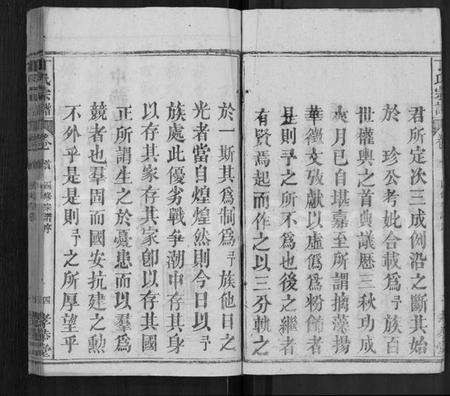 君所定次三成例沿之斷其始
於 珍公考妣合載爲予族百
世權輿之首典議歷三秋功成
月已自堪嘉至所謂摛藻揚
華徵文放獻以虛僞爲粉飾者
是則予之所不爲也後之繼者
有賢焉起而作之以三分軌之
於一斯其爲制爲予族他日之
光者當自煌煌然則今日以予
族處此優劣戰爭潮中存其身
以存其家卽以存其國
正所謂生之於憂患而以羣爲
競者也羣固而國安抗建之勳
不外乎是是則予之所厚望乎
氏宗譜
卷首
四